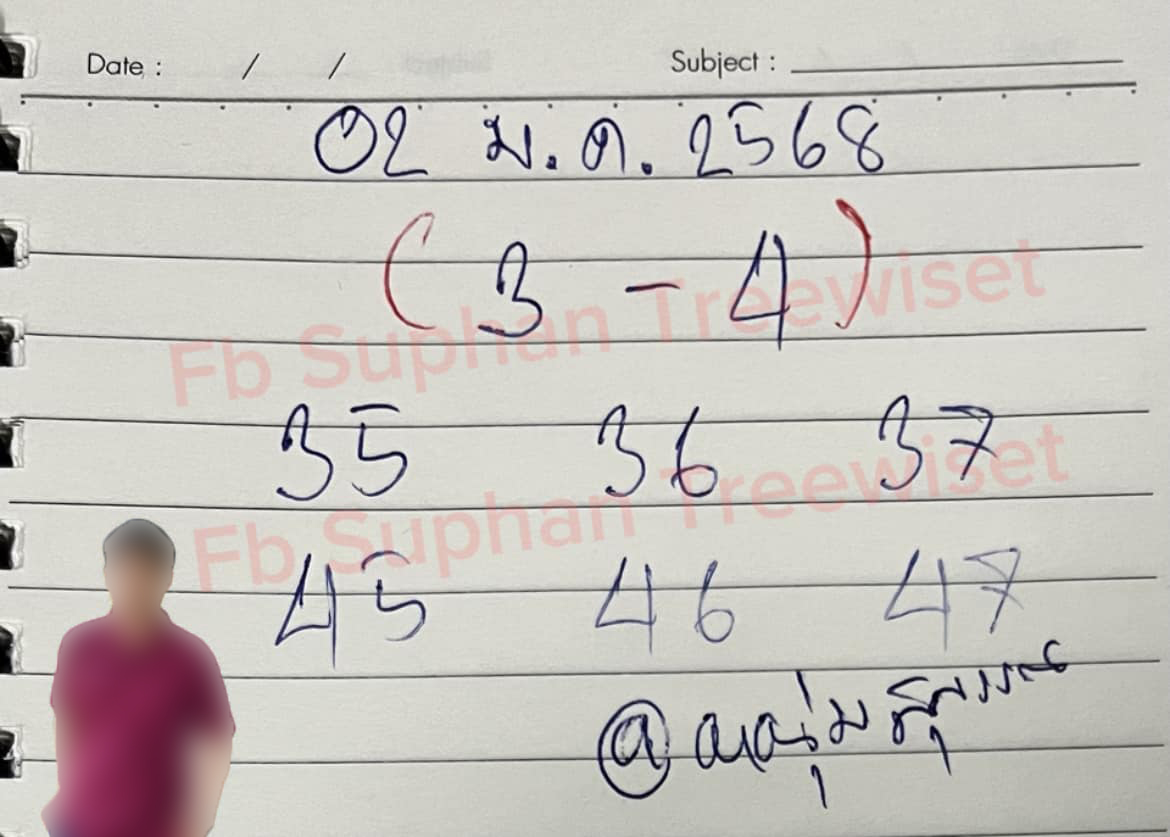 Date : / / Subject :
02 ม.ค. 2568
(3 - 4)
Fb Suphan Treewiset
35 36 37
Fb Suphan Treewiset
45 46 47
@